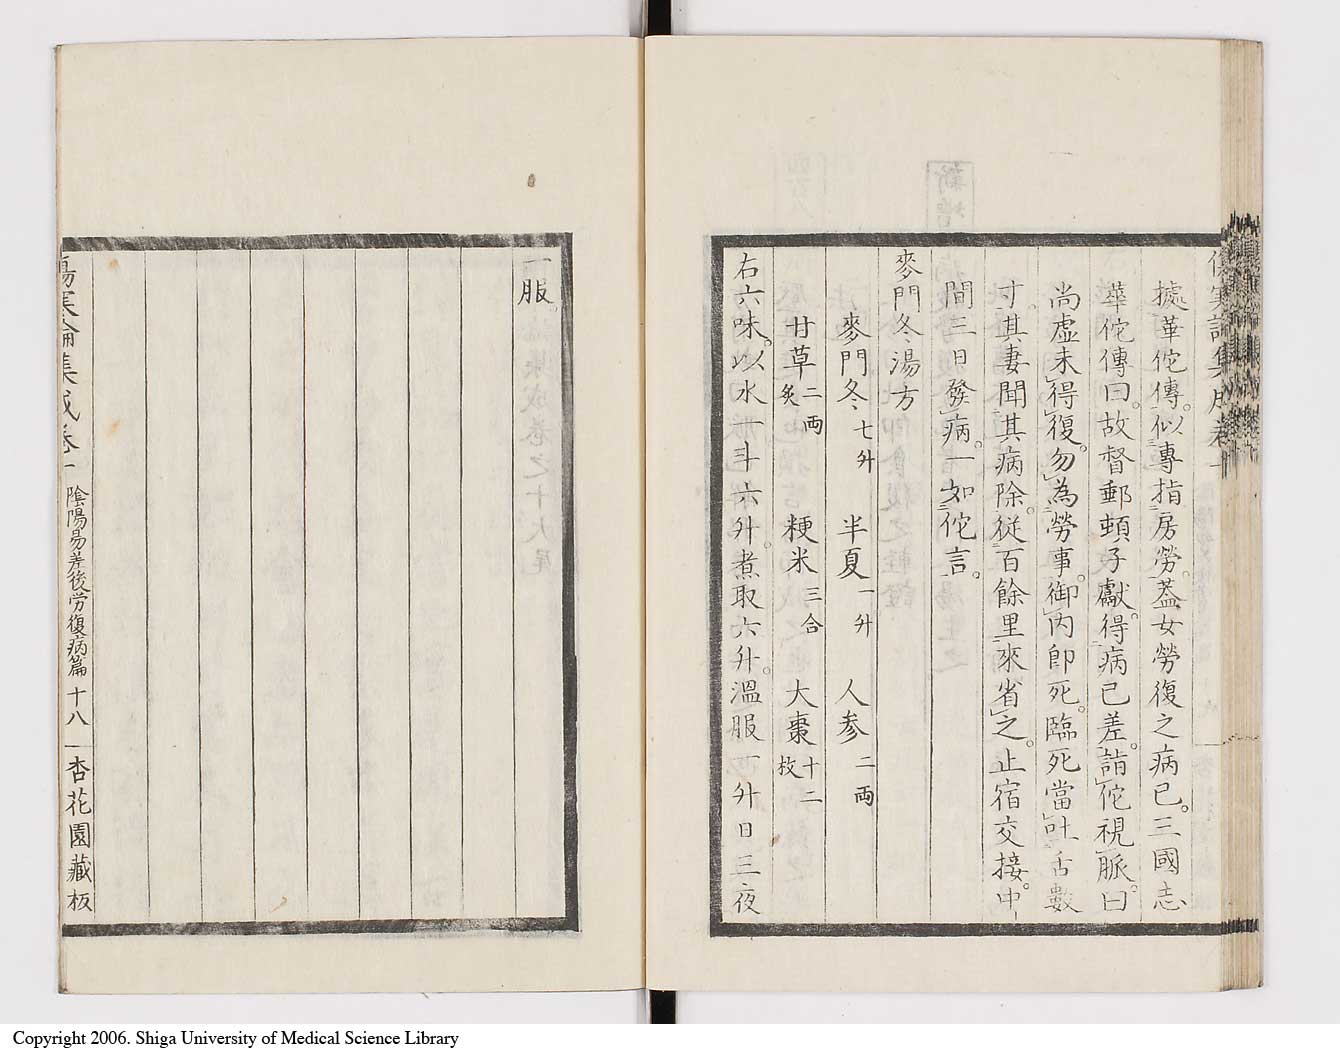 據華佗傳。似專指房勞。蓋女勞復之病已。三國志
華佗傳曰。故督郵頓子獻。得病已差。詣佗視脈。曰
尚虛未得復。勿為勞事。御內即死。臨死當吐舌數
寸。其妻聞其病除。從百餘里來省之。止宿交接。中
間三日發病。一如佗言。
麥門冬湯方
麥門冬七升 半夏一升 人参二両
甘草二両炙 粳米三合 大棗十二枚
右六味。以水一斗六升。煮取六升。溫服一升日三夜
一服。
傷寒論集成卷十 陰陽易差後労復病篇 十八 杏花園藏板
Copyright 2006. Shiga University of Medical Science Library